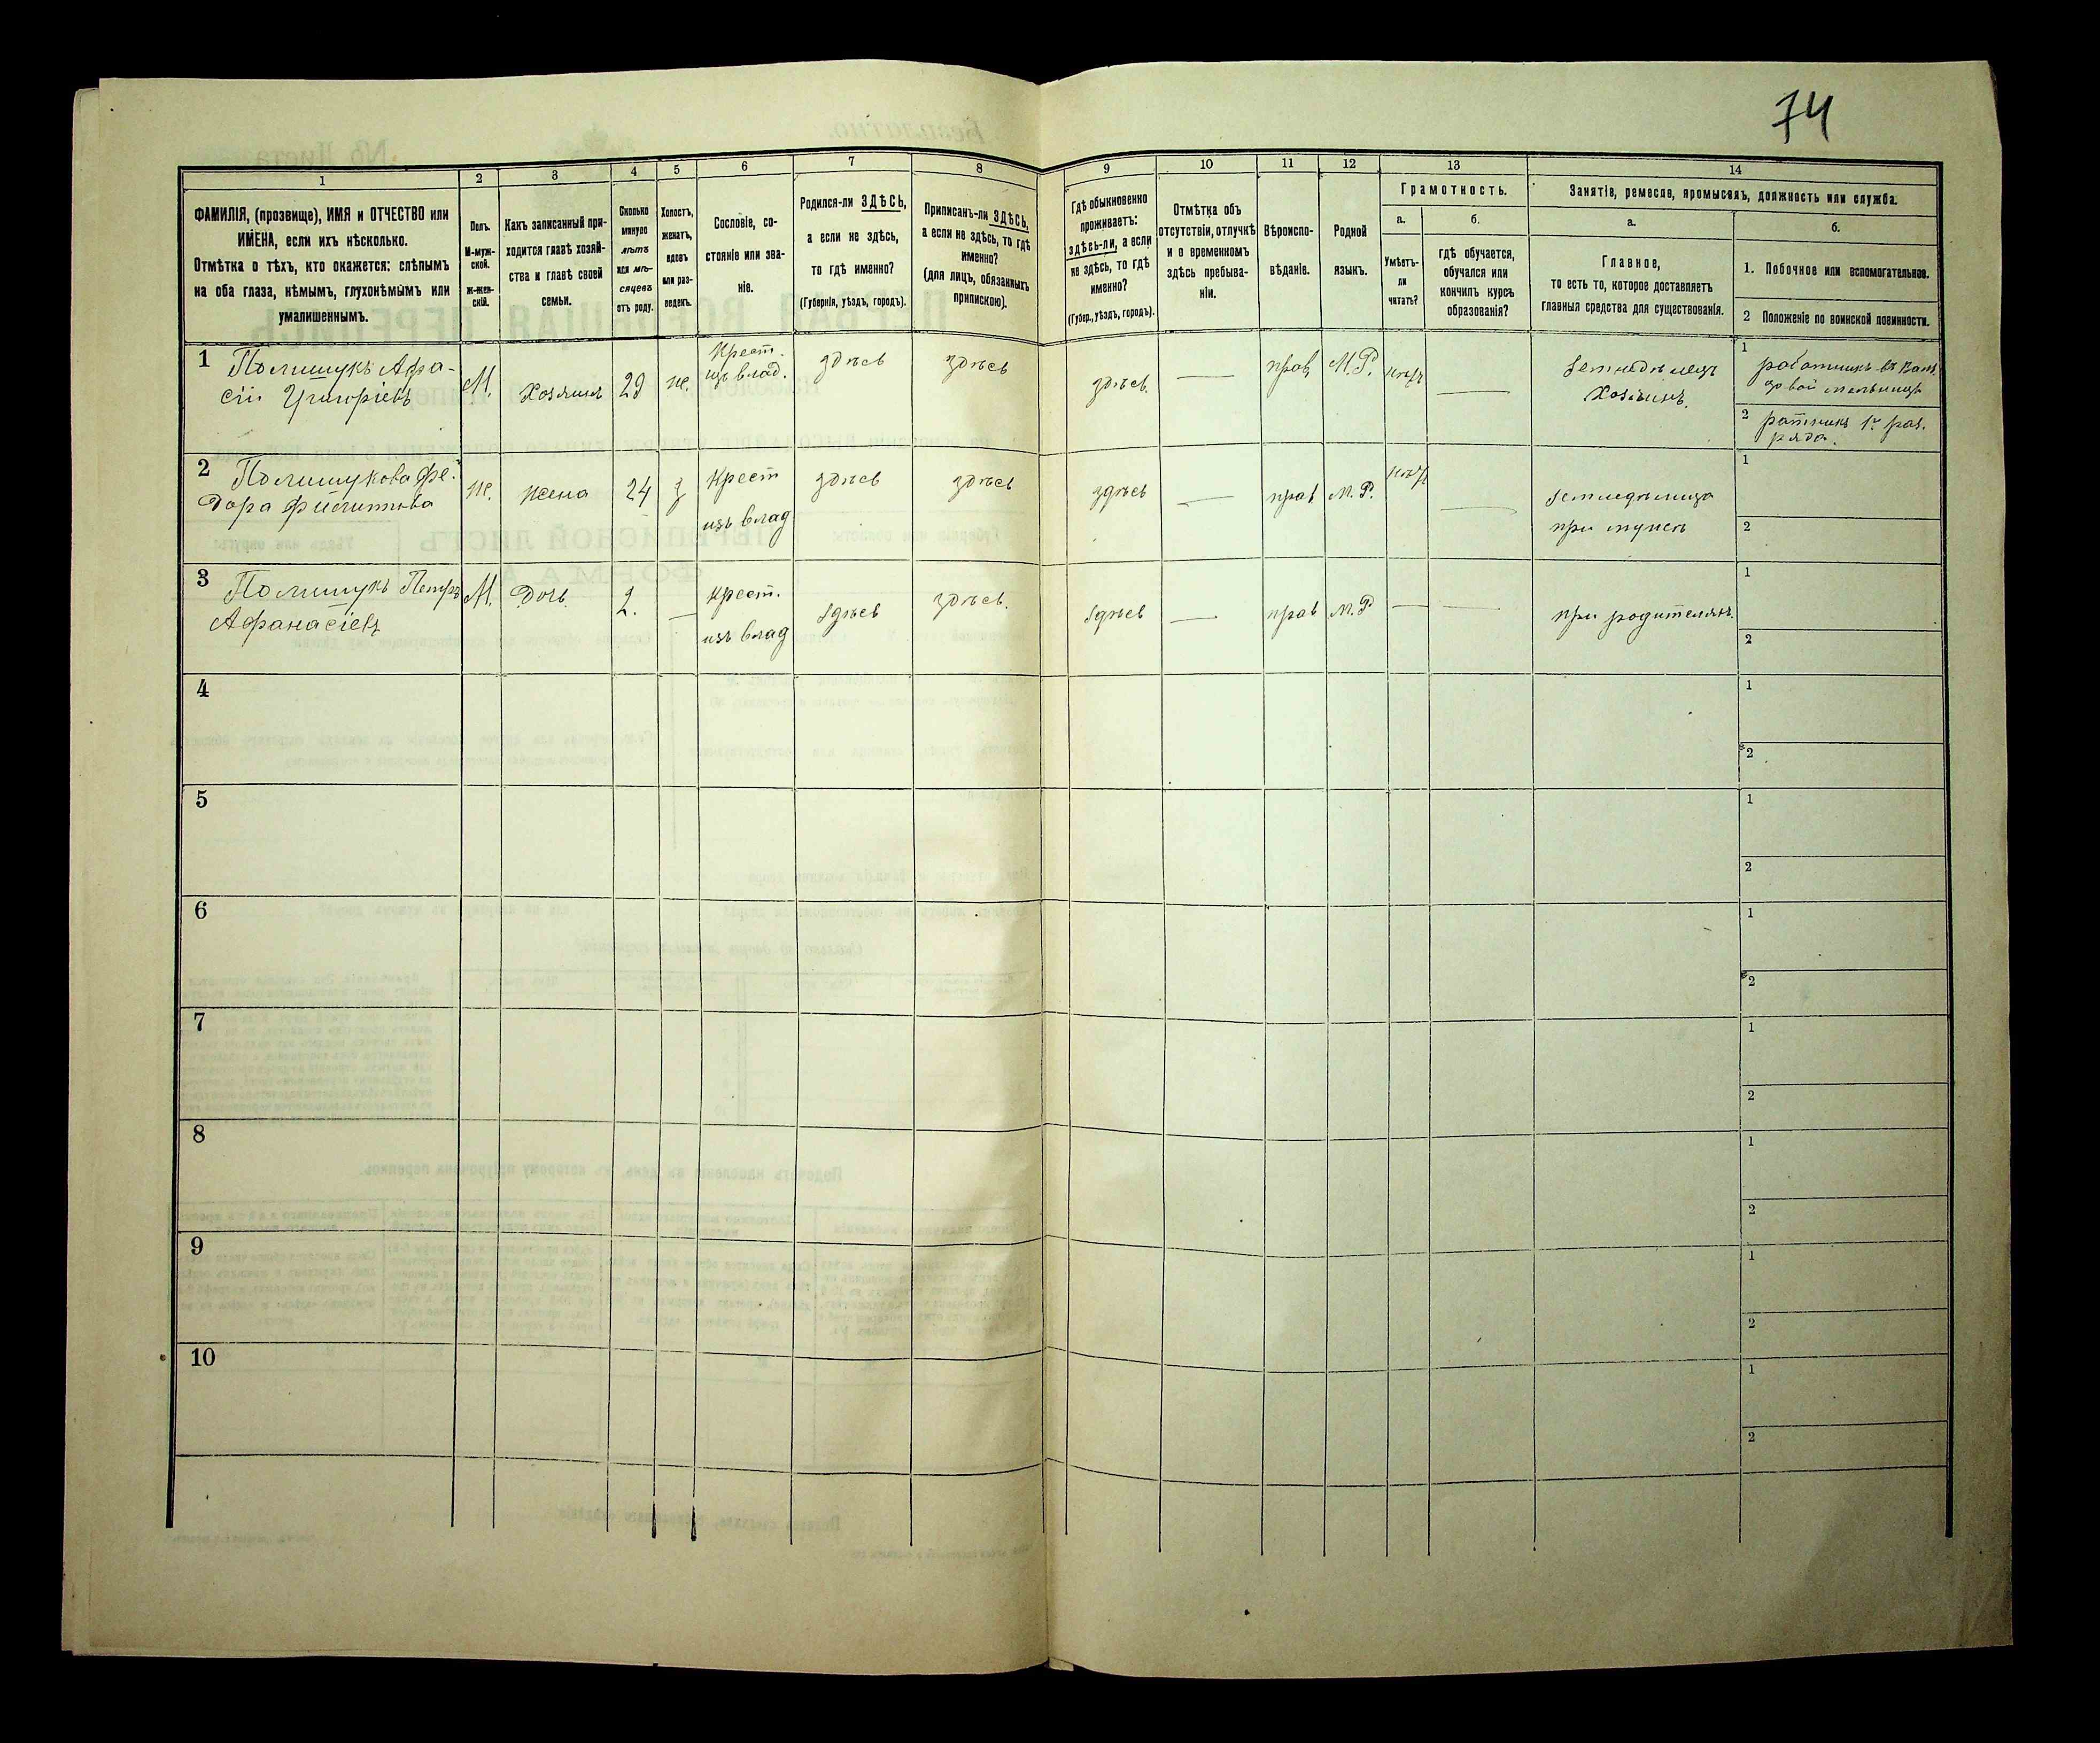 74
1 2 3 4 5 6 7 8 9 10 11 12 13 14
ФАМИЛІЯ, (прозвище), ИМЯ и ОТЧЕСТВО или
ИМЕНА, если ихъ нѣсколько.
Отмѣтка о тѣхъ, кто окажется: слѣпымъ
на оба глаза, нѣмымъ, глухонѣмымъ или
умалишеннымъ.
Полъ.
М-муж-
ской.
ж-жен-
скій.
Какъ записанный при-
ходится главѣ хозяй-
ства и главѣ своей
семьи.
Сколько
минуло
лѣтъ
или мѣ-
сяцевъ
отъ роду.
Холостъ,
женатъ,
вдовъ
или раз-
веденъ.
Сословіе, со-
стояніе или зва-
ніе.
Родился-ли ЗДѢСЬ,
а если не здѣсь,
то гдѣ именно?
(Губернія, уѣздъ, городъ).
Приписанъ-ли ЗДѢСЬ,
а если не здѣсь, то гдѣ
именно?
(для лицъ, обязанныхъ
припискою).
Гдѣ обыкновенно
проживаетъ:
здѣсь-ли, а если
не здѣсь, то гдѣ
именно?
(Губер., уѣздъ, городъ).
Отмѣтка объ
отсутствіи, отлучкѣ
и о временномъ
здѣсь пребыва-
ніи.
Вѣроиспо-
вѣданіе.
Родной
языкъ.
Грамотность.
а.
Умѣетъ-
ли
читать?
б.
гдѣ обучается,
обучался или
кончилъ курсъ
образованія?
Занятіе, ремесло, промыселъ, должность или служба.
а.
Главное,
то есть то, которое доставляетъ
главныя средства для существованія.
б.
1. Побочное или вспомогательное.
2 Положеніе по воинской повинности.
1 Полищукъ Афа-
сій Григоріевъ
М.
Хозяинъ
29
ж.
Крест.
изъ влад.
здѣсь
здѣсь
здѣсь.
—
прав
М.Р.
нѣтъ
—
Земледѣлецъ
Хозяинъ.
1 работникъ въ
мельницѣ
2 ратникъ 1го раз.
ряда.
2 Полищукова Фе-
дора
ж.
жена
24
з
Крест
изъ влад
здѣсь
здѣсь
здѣсь
—
прав
М.Р.
нѣтъ
—
земледѣлица
при мужѣ
1
2
3 Полищукъ Петръ
Афанасіевъ
М.
Дочь
2.
—
крест.
изъ влад
здѣсь
здѣсь.
здѣсь
—
прав
М.Р
—
—
при родителяхъ.
1
2
4
1
2
5
1
2
6
1
2
7
1
2
8
1
2
9
1
2
10
1
2